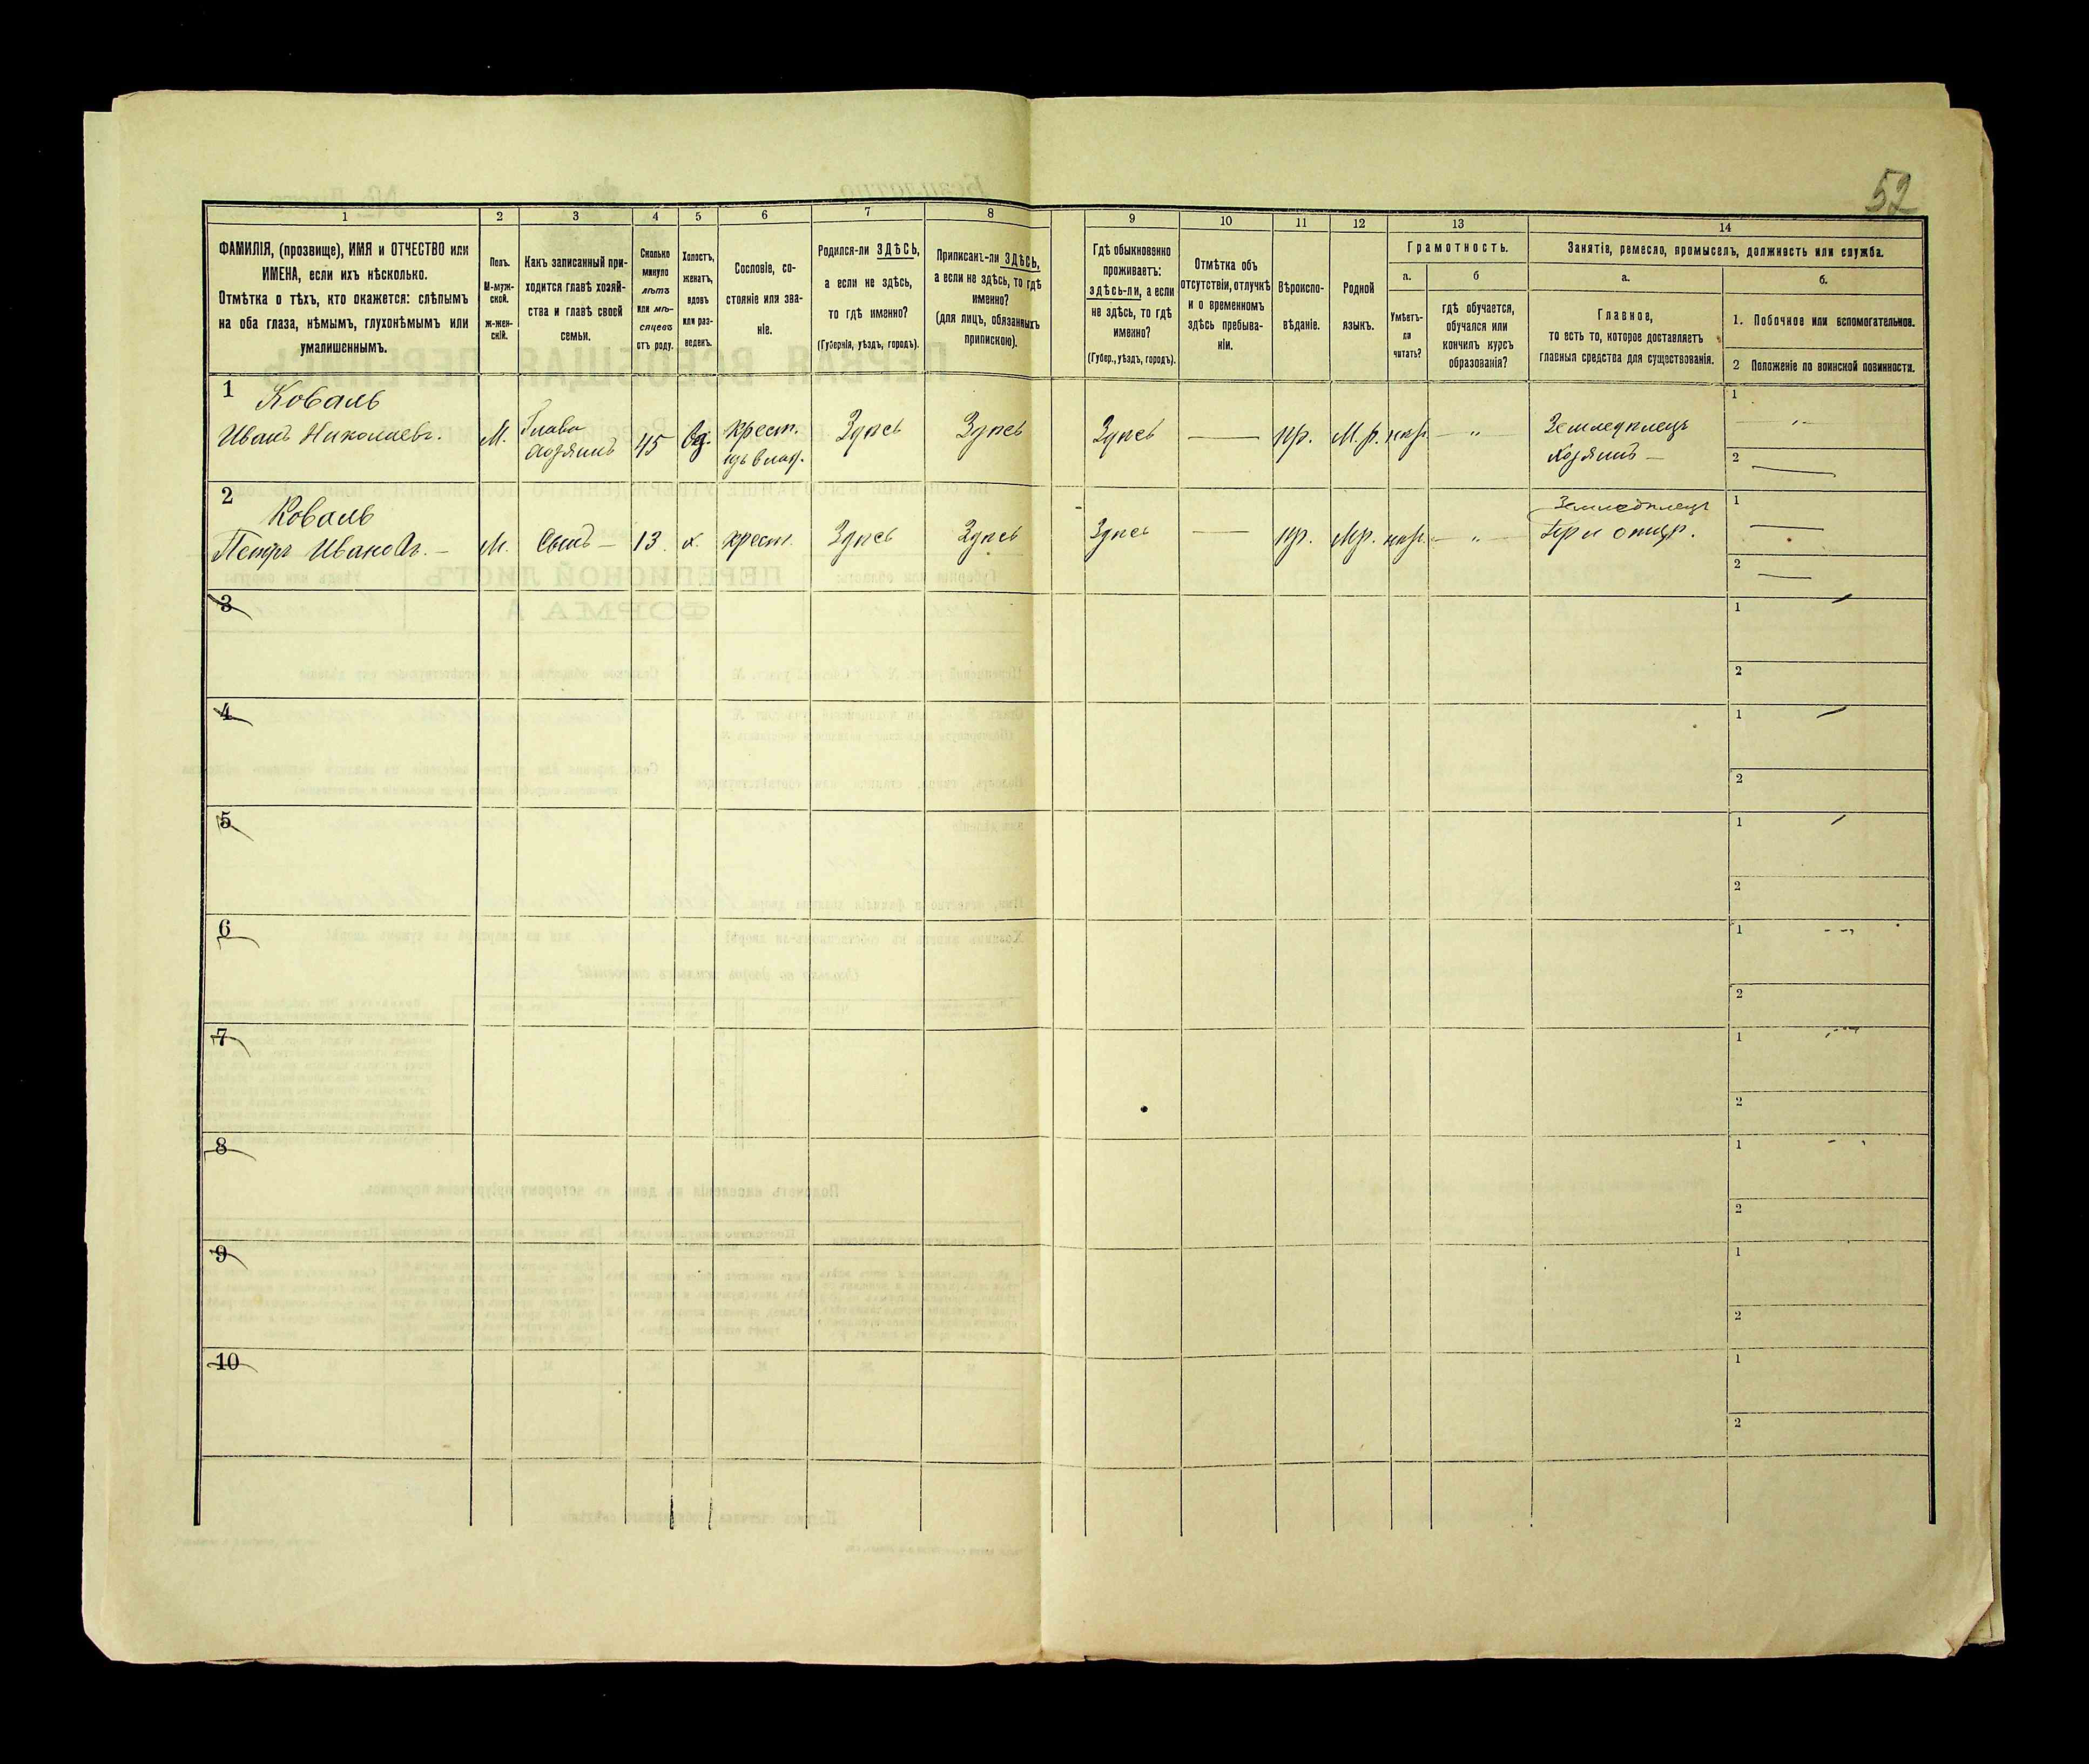 52
1
2
3
4
5
6
7
8
9
10
11
12
13
14
ФАМИЛІЯ, (прозвище), ИМЯ и ОТЧЕСТВО или
ИМЕНА, если ихъ нѣсколько.
Отмѣтка о тѣхъ, кто окажется: слѣпымъ
на оба глаза, нѣмымъ, глухонѣмымъ или
умалишеннымъ.
Полъ.
М-муж-
ской.
ж-жен-
скій.
Какъ записанный при-
ходится главѣ хозяй-
ства и главѣ своей
семьи.
Сколько
минуло
лѣтъ
или мѣ-
сяцевъ
отъ роду.
Холостъ,
женатъ,
вдовъ
или раз-
веденъ.
Сословіе, со-
стояніе или зва-
ніе.
Родился-ли ЗДѢСЬ,
а если не здѣсь,
то гдѣ именно?
(Губернія, уѣздъ, городъ).
Приписанъ-ли ЗДѢСЬ,
а если не здѣсь, то гдѣ
именно?
(для лицъ, обязанныхъ
припискою).
Гдѣ обыкновенно
проживаетъ:
здѣсь-ли, а если
не здѣсь, то гдѣ
именно?
(Губер., уѣздъ, городъ).
Отмѣтка объ
отсутствіи, отлучкѣ
и о временномъ
здѣсь пребыва-
ніи.
Вѣроиспо-
вѣданіе.
Родной
языкъ.
Грамотность.
а.
Умѣетъ-
ли
читать?
б
гдѣ обучается,
обучался или
кончилъ курсъ
образованія?
Занятіе, ремесло, промыселъ, должность или служба.
а.
Главное,
то есть то, которое доставляетъ
главныя средства для существованія.
б.
1. Побочное или вспомогательное.
2 Положеніе по воинской повинности.
1
Коваль
Иванъ Николаевъ.
М.
Глава
хозяинъ
45
вд.
крест.
Здѣсь
Здѣсь
Здѣсь
—
пр.
М.р.
— „ —
Земледѣлецъ
Хозяинъ —
1
— „ —
2
—
2
Коваль
Петръ Иванов. —
М.
Сынъ —
13.
х.
крест.
Здѣсь
Здѣсь
Здѣсь
—
пр.
Мр.
— „ —
Земледѣлецъ
При отцѣ.
1
—
2
—
3
1
2
4
1
2
5
1
2
6
1
2
7
1
2
8
1
2
9
1
2
10
1
2